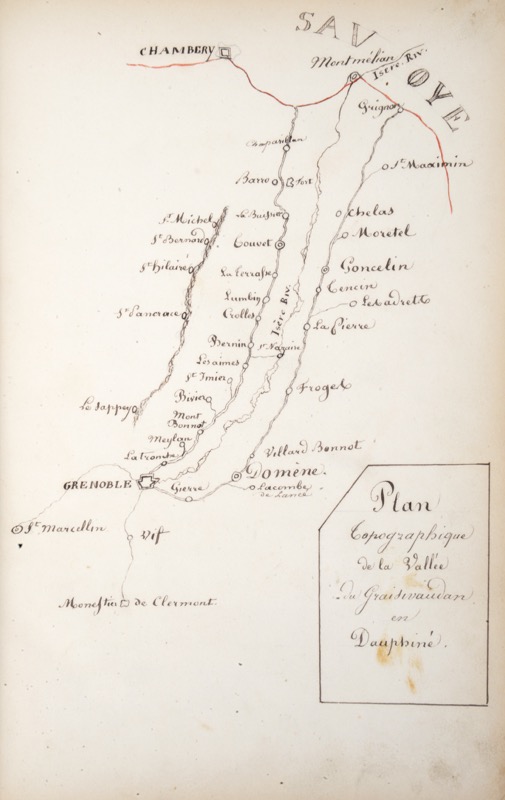 SAVOYE
CHAMBERY
Montmélian
Isère. Riv.
Grignon
Chaparillan
St. Maximin
Barro
Fort
Chelas
St. Michel
Le Buisson
Moretel
St. Bernard
Touvet
St. Hilaire
La Terrasse
Goncelin
Tencin
Lumbin
Les adrets
St. Pancrace
Crolles
Isère Riv.
La Pierre
Bernin
St. Nazaire
Les aimes
St. Imier
Froges
Bivier
Le Sappey
Mont
Bonnot
Meylan
Villard Bonnot
La tronche
Domène.
GRENOBLE
Gierre
Lacombe
de Lance
St. Marcellin
Vif
Monestier de Clermont.
Plan
Topographique
de la Vallée
du Graisivaudan
en
Dauphiné.